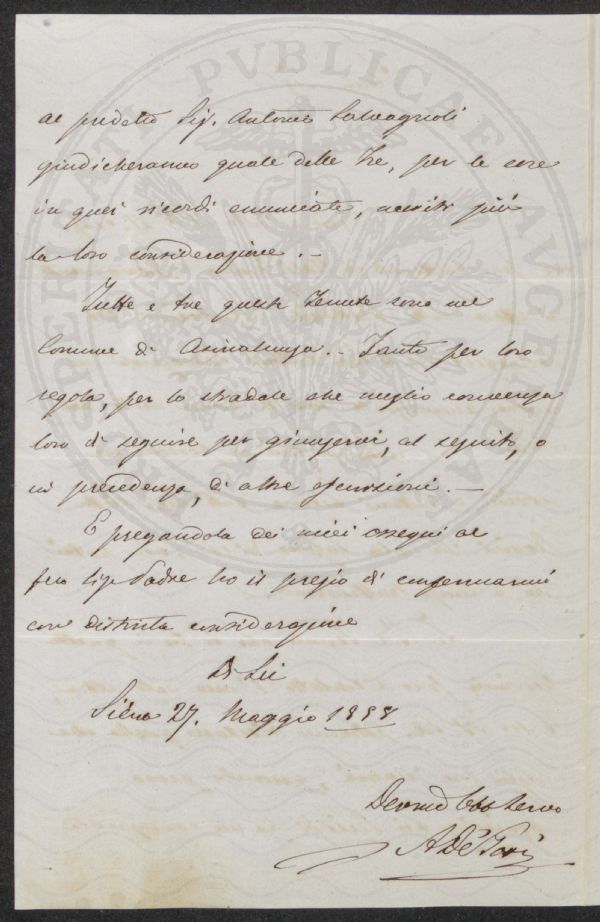 al predetto Sig. Antonio Salvagnoli
giudicheranno quale delle tre, per le cose
in quei ricordi enunciate, meriti più
la loro considerazione. —
Tutte e tre queste Tenute sono nel
Comune di Asinalunga. — Tanto per loro
regola, per lo stradale che meglio convenga
loro di seguire per giungervi, al seguito, o
in precedenza, di altre escursioni. —
E pregandola dei miei ossequi al
suo Sig. Padre ho il pregio di confermarmi
con distinta considerazione
Di Lei
Siena 27. Maggio 1858
Devmo Obb Servo
A De
PVBLICAE
AVGE